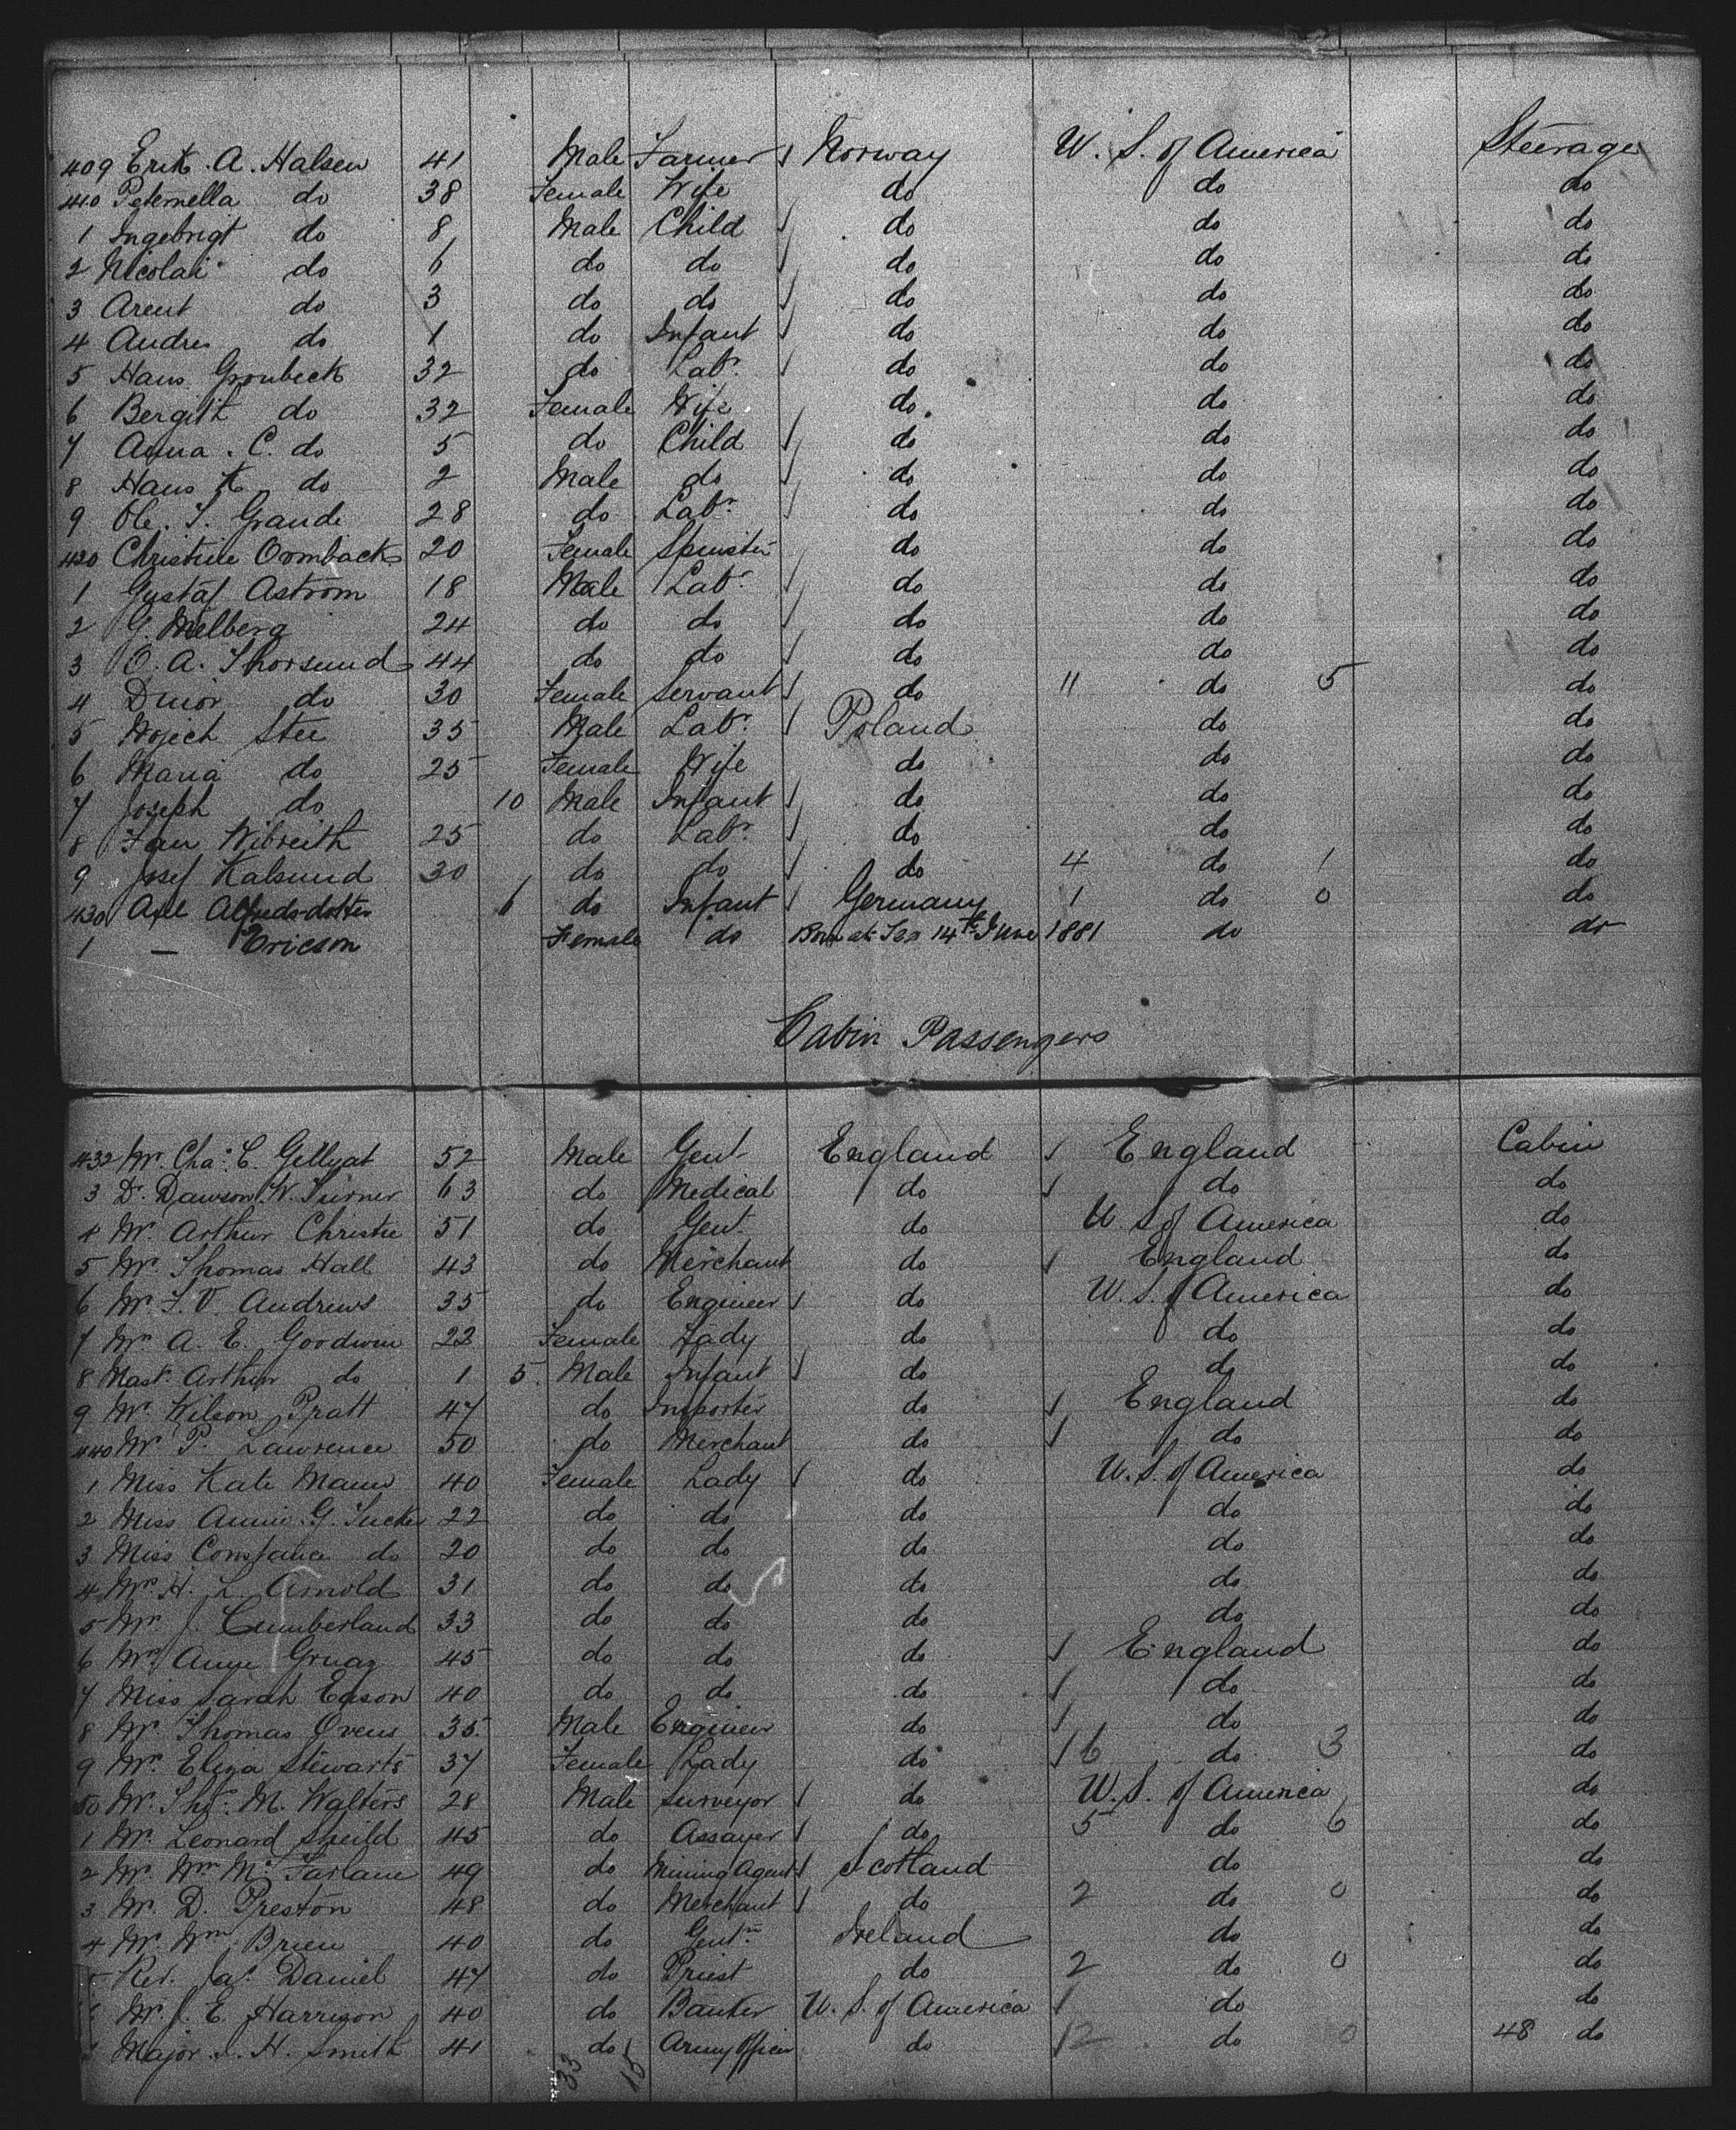 409 Erik A. Halsen 41 Male Farmer Norway U. S. of America Steerage
410 Peternella do 38 Female Wife do do do
1 Ingebrigt do 8 Male Child do do do
2 Nicolai do 6 do do do do do
3 Arent do 3 do do do do do
4 Andres do 1 do Infant do do do
5 Hans Gronbeck 32 do Labr. do do do
6 Bergith do 32 Female Wife do do do
7 Anna C. do 5 do Child do do do
8 Hans K do 2 Male do do do do
9 Ole. T. Grande 28 do Labr. do do do
420 Christine Ormback 20 Female Spinster do do do
1 Gustaf Astrom 18 Male Labr. do do do
2 G. Melberg 24 do do do do do
3 O. A. Thorsund 44 do do do do do
4 do 30 Female Servant do 11 do 5 do
5 Wojech Stec 35 Male Labr. Poland do do
6 Maria do 25 Female Wife do do do
7 Joseph do 10 Male Infant do do do
8 Jan Wibreith 25 do Labr. do do do
9 Josef Kalsund 30 do do do 4 do 1 do
430 Axel Alfredsdotter 6 do Infant Germany 1 do 0 do
1 — Ericson Female do Born at Sea 14th June 1881 do do
Cabin Passengers
432 Mr. Chas. C. Gellyat 52 Male Gent England England Cabin
3 Dr. Dawson W. Turner 63 do Medical do do do
4 Mr. Arthur Christie 51 do Gent. do U. S of America do
5 Mr. Thomas Hall 43 do Merchant do England do
6 Mr. F. V. Andrews 35 do Engineer do U. S. of America do
7 Mrs A. E. Goodwin 22 Female Lady do do do
8 Mast. Arthur do 1 5 Male Infant do do do
9 Mr. Wilson Pratt 47 do Importer do England do
440 Mr P. Lawrence 50 do Merchant do do do
1 Miss Kate Mann 40 Female Lady do U. S. of America do
2 Miss Annie G. Tucker 22 do do do do do
3 Miss Constance do 20 do do do do do
4 Mrs H. L. Arnold 31 do do do do do
5 Mrs J. Cumberland 33 do do do do do
6 Mrs Gruaz 45 do do do England do
7 Miss Sarah Eason 40 do do do do do
8 Mr. Thomas Ovens 35 Male Engineer do do do
9 Mrs Eliza Stewarts 37 Female Lady do 16 do 3 do
50 Mr. Thos. M. Walters 28 Male Surveyor do U. S. of America do
1 Mr. Leonard Sheild 45 do Assayer do 5 do 6 do
2 Mr. Wm. Mc Farlane 49 do Mining Agent Scotland do do
3 Mr. D. Preston 48 do Merchant do 2 do 0 do
4 Mr. Wm. Brien 40 do Gentn. Ireland do do
Rev. Jas. Daniel 47 do Priest do 2 do 0 do
Mr. J. E. Harrison 40 do Banker U. S. of America do do
Major H. Smith 41 do Army Officer do 12 do 0 48 do
33 15